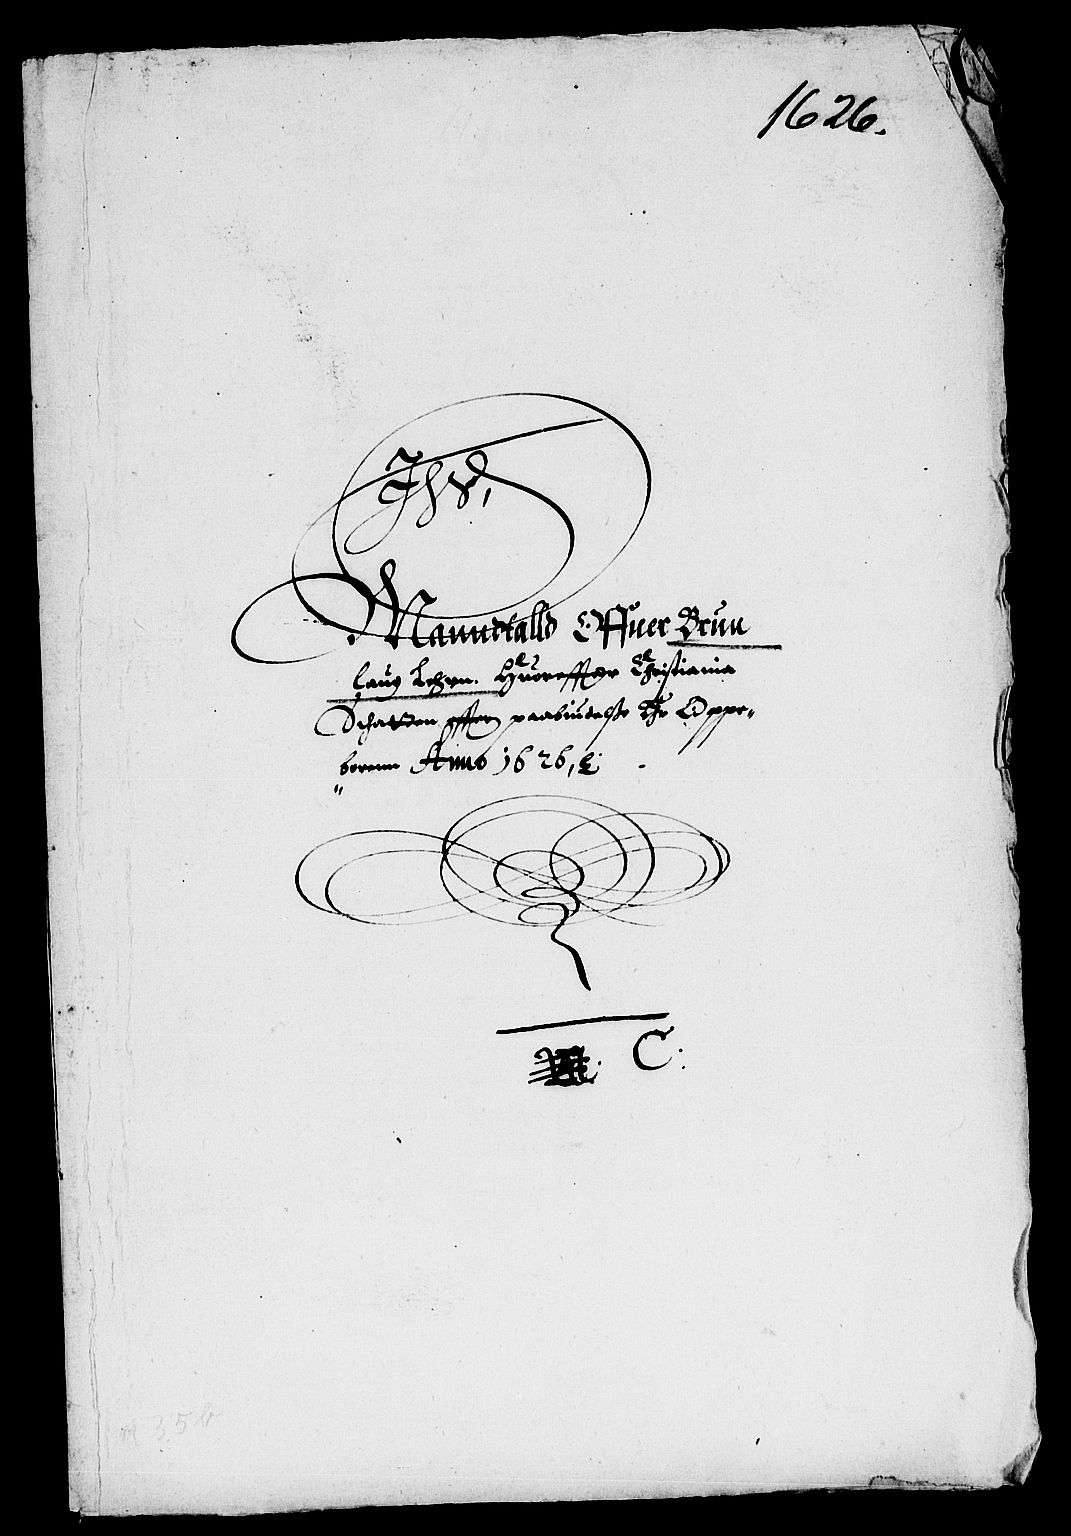 1626.
Ihs,
Manndtalls Offuer Brun
laug Lehnn. Huoreffter Christiania
Schatten effter paabiudelse Er Oppe„
„borenn Anno 1626,
C: